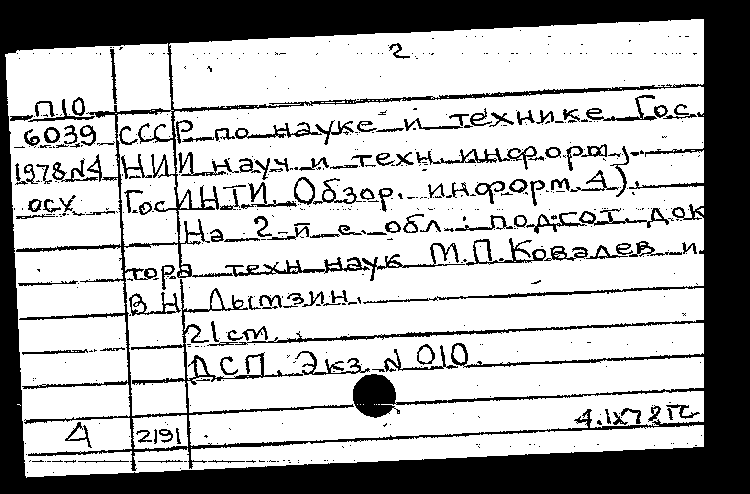 2
П10
6039 СССР по науке и технике. Гос.
1978 N4 НИИ науч и техн. информ.,
осх ГосИНТИ. Обзор. информ. 4).
На 2-й с. обл.: подгот. док
тора техн наук М.П.Ковалев и
В Н Лымзин.
21 cm.
ДСП. Экз. N 010.
4 2191 4.IX78 ГС